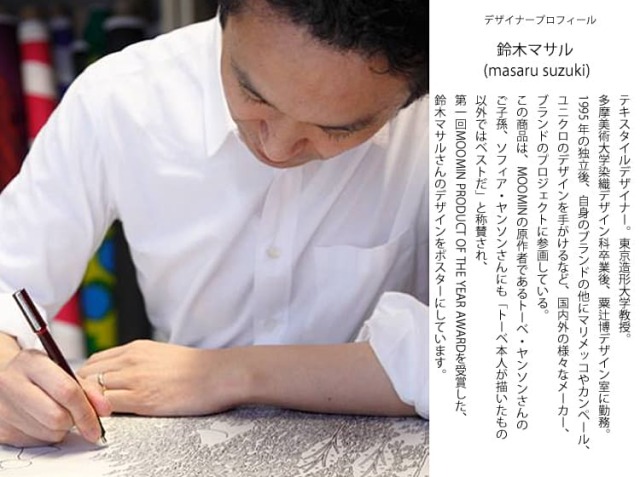 デザイナープロフィール
鈴木マサル
(masaru suzuki)
テキスタイルデザイナー。東京造形大学教授。
多摩美術大学染織デザイン科卒業後、粟辻博デザイン室に勤務。
1995年の独立後、自身のブランドの他にマリメッコやカンペール、
ユニクロのデザインを手がけるなど、国内外の様々なメーカー、
ブランドのプロジェクトに参画している。
この商品は、MOOMINの原作者であるトーベ・ヤンソンさんの
ご子孫、ソフィア・ヤンソンさんにも「トーベ本人が描いたもの
以外ではベストだ」と称賛され、
第一回MOOMIN PRODUCT OF THE YEAR AWARDを受賞した、
鈴木マサルさんのデザインをポスターにしています。